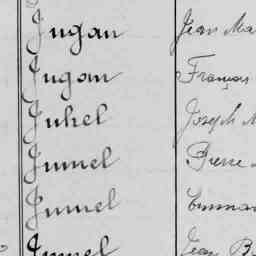 Jugan Jean Ma
Jugan François
Juhel Joseph M
Jumel Pierre
Jumel Emman
Jumel Jean B